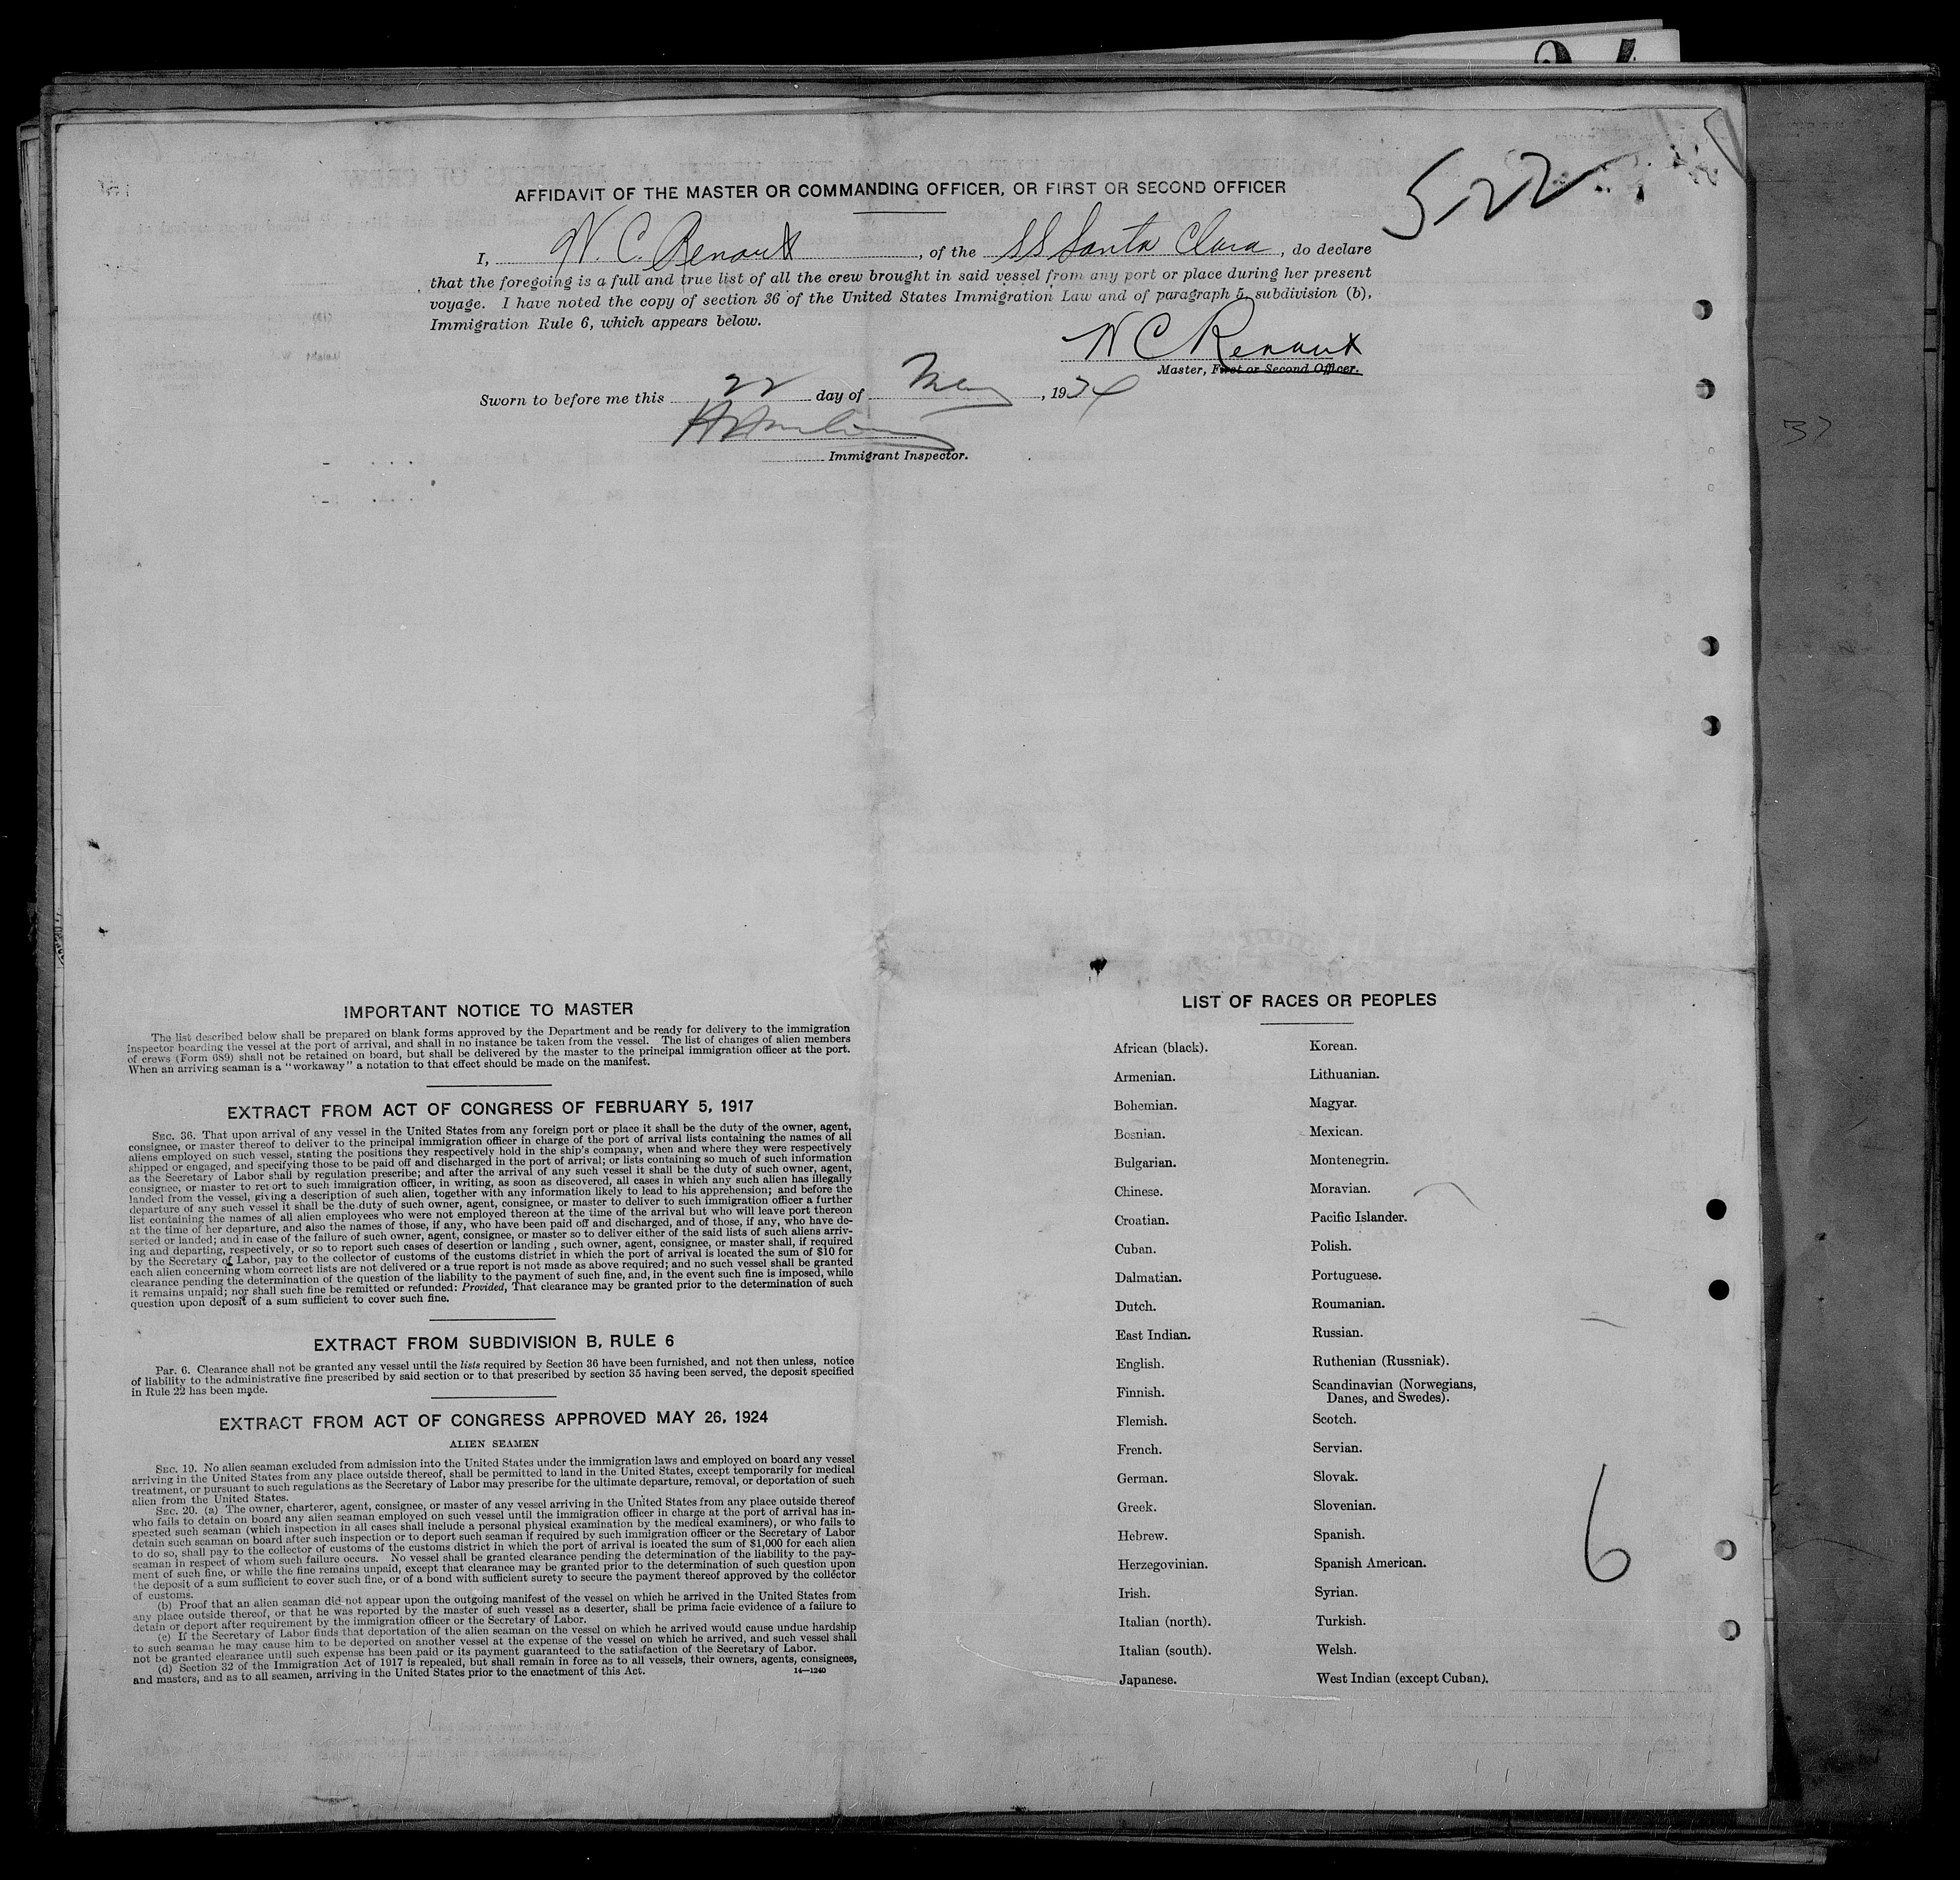 522
AFFIDAVIT OF THE MASTER OR COMMANDING OFFICER, OR FIRST OR SECOND OFFICER
I, W. C. Renaut, of the SS Santa Clara, do declare
that the foregoing is a full and true list of all the crew brought in said vessel from any port or place during her present
voyage. I have noted the copy of section 36 of the United States Immigration Law and of paragraph 5, subdivision (b),
Immigration Rule 6, which appears below.
W C Renaut
Master, First or Second Officer.
Sworn to before me this 22 day of May, 1934
Immigrant Inspector.
37
IMPORTANT NOTICE TO MASTER
The list described below shall be prepared on blank forms approved by the Department and be ready for delivery to the immigration
inspector boarding the vessel at the port of arrival, and shall in no instance be taken from the vessel. The list of changes of alien members
of crews (Form 689) shall not be retained on board, but shall be delivered by the master to the principal immigration officer at the port.
When an arriving seaman is a "workaway" a notation to that effect should be made on the manifest.
EXTRACT FROM ACT OF CONGRESS OF FEBRUARY 5, 1917
SEC. 36. That upon arrival of any vessel in the United States from any foreign port or place it shall be the duty of the owner, agent,
consignee, or master thereof to deliver to the principal immigration officer in charge of the port of arrival lists containing the names of all
aliens employed on such vessel, stating the positions they respectively hold in the ship's company, when and where they were respectively
shipped or engaged, and specifying those to be paid off and discharged in the port of arrival; or lists containing so much of such information
as the Secretary of Labor shall by regulation prescribe; and after the arrival of any such vessel it shall be the duty of such owner, agent,
consignee, or master to report to such immigration officer, in writing, as soon as discovered, all cases in which any such alien has illegally
landed from the vessel, giving a description of such alien, together with any information likely to lead to his apprehension; and before the
departure of any such vessel it shall be the duty of such owner, agent, consignee, or master to deliver to such immigration officer a further
list containing the names of all alien employees who were not employed thereon at the time of the arrival but who will leave port thereon
at the time of her departure, and also the names of those, if any, who have been paid off and discharged, and of those, if any, who have de-
serted or landed; and in case of the failure of such owner, agent, consignee, or master so to deliver either of the said lists of such aliens arriv-
ing and departing, respectively, or so to report such cases of desertion or landing , such owner, agent, consignee, or master shall, if required
by the Secretary of Labor, pay to the collector of customs of the customs district in which the port of arrival is located the sum of $10 for
each alien concerning whom correct lists are not delivered or a true report is not made as above required; and no such vessel shall be granted
clearance pending the determination of the question of the liability to the payment of such fine, and, in the event such fine is imposed, while
it remains unpaid; nor shall such fine be remitted or refunded: Provided, That clearance may be granted prior to the determination of such
question upon deposit of a sum sufficient to cover such fine.
EXTRACT FROM SUBDIVISION B, RULE 6
Par. 6. Clearance shall not be granted any vessel until the lists required by Section 36 have been furnished, and not then unless, notice
of liability to the administrative fine prescribed by said section or to that prescribed by section 35 having been served, the deposit specified
in Rule 22 has been made.
EXTRACT FROM ACT OF CONGRESS APPROVED MAY 26, 1924
ALIEN SEAMEN
SEC. 19. No alien seaman excluded from admission into the United States under the immigration laws and employed on board any vessel
arriving in the United States from any place outside thereof, shall be permitted to land in the United States, except temporarily for medical
treatment, or pursuant to such regulations as the Secretary of Labor may prescribe for the ultimate departure, removal, or deportation of such
alien from the United States.
SEC. 20. (a) The owner, charterer, agent, consignee, or master of any vessel arriving in the United States from any place outside thereof
who fails to detain on board any alien seaman employed on such vessel until the immigration officer in charge at the port of arrival has in-
spected such seaman (which inspection in all cases shall include a personal physical examination by the medical examiners), or who fails to
detain such seaman on board after such inspection or to deport such seaman if required by such immigration officer or the Secretary of Labor
to do so, shall pay to the collector of customs of the customs district in which the port of arrival is located the sum of $1,000 for each alien
seaman in respect of whom such failure occurs. No vessel shall be granted clearance pending the determination of the liability to the pay-
ment of such fine, or while the fine remains unpaid, except that clearance may be granted prior to the determination of such question upon
the deposit of a sum sufficient to cover such fine, or of a bond with sufficient surety to secure the payment thereof approved by the collector
of customs.
(b) Proof that an alien seaman did not appear upon the outgoing manifest of the vessel on which he arrived in the United States from
any place outside thereof, or that he was reported by the master of such vessel as a deserter, shall be prima facie evidence of a failure to
detain or deport after requirement by the immigration officer or the Secretary of Labor.
(c) If the Secretary of Labor finds that deportation of the alien seaman on the vessel on which he arrived would cause undue hardship
to such seaman he may cause him to be deported on another vessel at the expense of the vessel on which he arrived, and such vessel shall
not be granted clearance until such expense has been paid or its payment guaranteed to the satisfaction of the Secretary of Labor.
(d) Section 32 of the Immigration Act of 1917 is repealed, but shall remain in force as to all vessels, their owners, agents, consignees,
and masters, and as to all seamen, arriving in the United States prior to the enactment of this Act.
14—1240
LIST OF RACES OR PEOPLES
African (black).
Armenian.
Bohemian.
Bosnian.
Bulgarian.
Chinese.
Croatian.
Cuban.
Dalmatian.
Dutch.
East Indian.
English.
Finnish.
Flemish.
French.
German.
Greek.
Hebrew.
Herzegovinian.
Irish.
Italian (north).
Italian (south).
Japanese.
Korean.
Lithuanian.
Magyar.
Mexican.
Montenegrin.
Moravian.
Pacific Islander.
Polish.
Portuguese.
Roumanian.
Russian.
Ruthenian (Russniak).
Scandinavian (Norwegians,
Danes, and Swedes).
Scotch.
Servian.
Slovak.
Slovenian.
Spanish.
Spanish American.
Syrian.
Turkish.
Welsh.
West Indian (except Cuban).
6